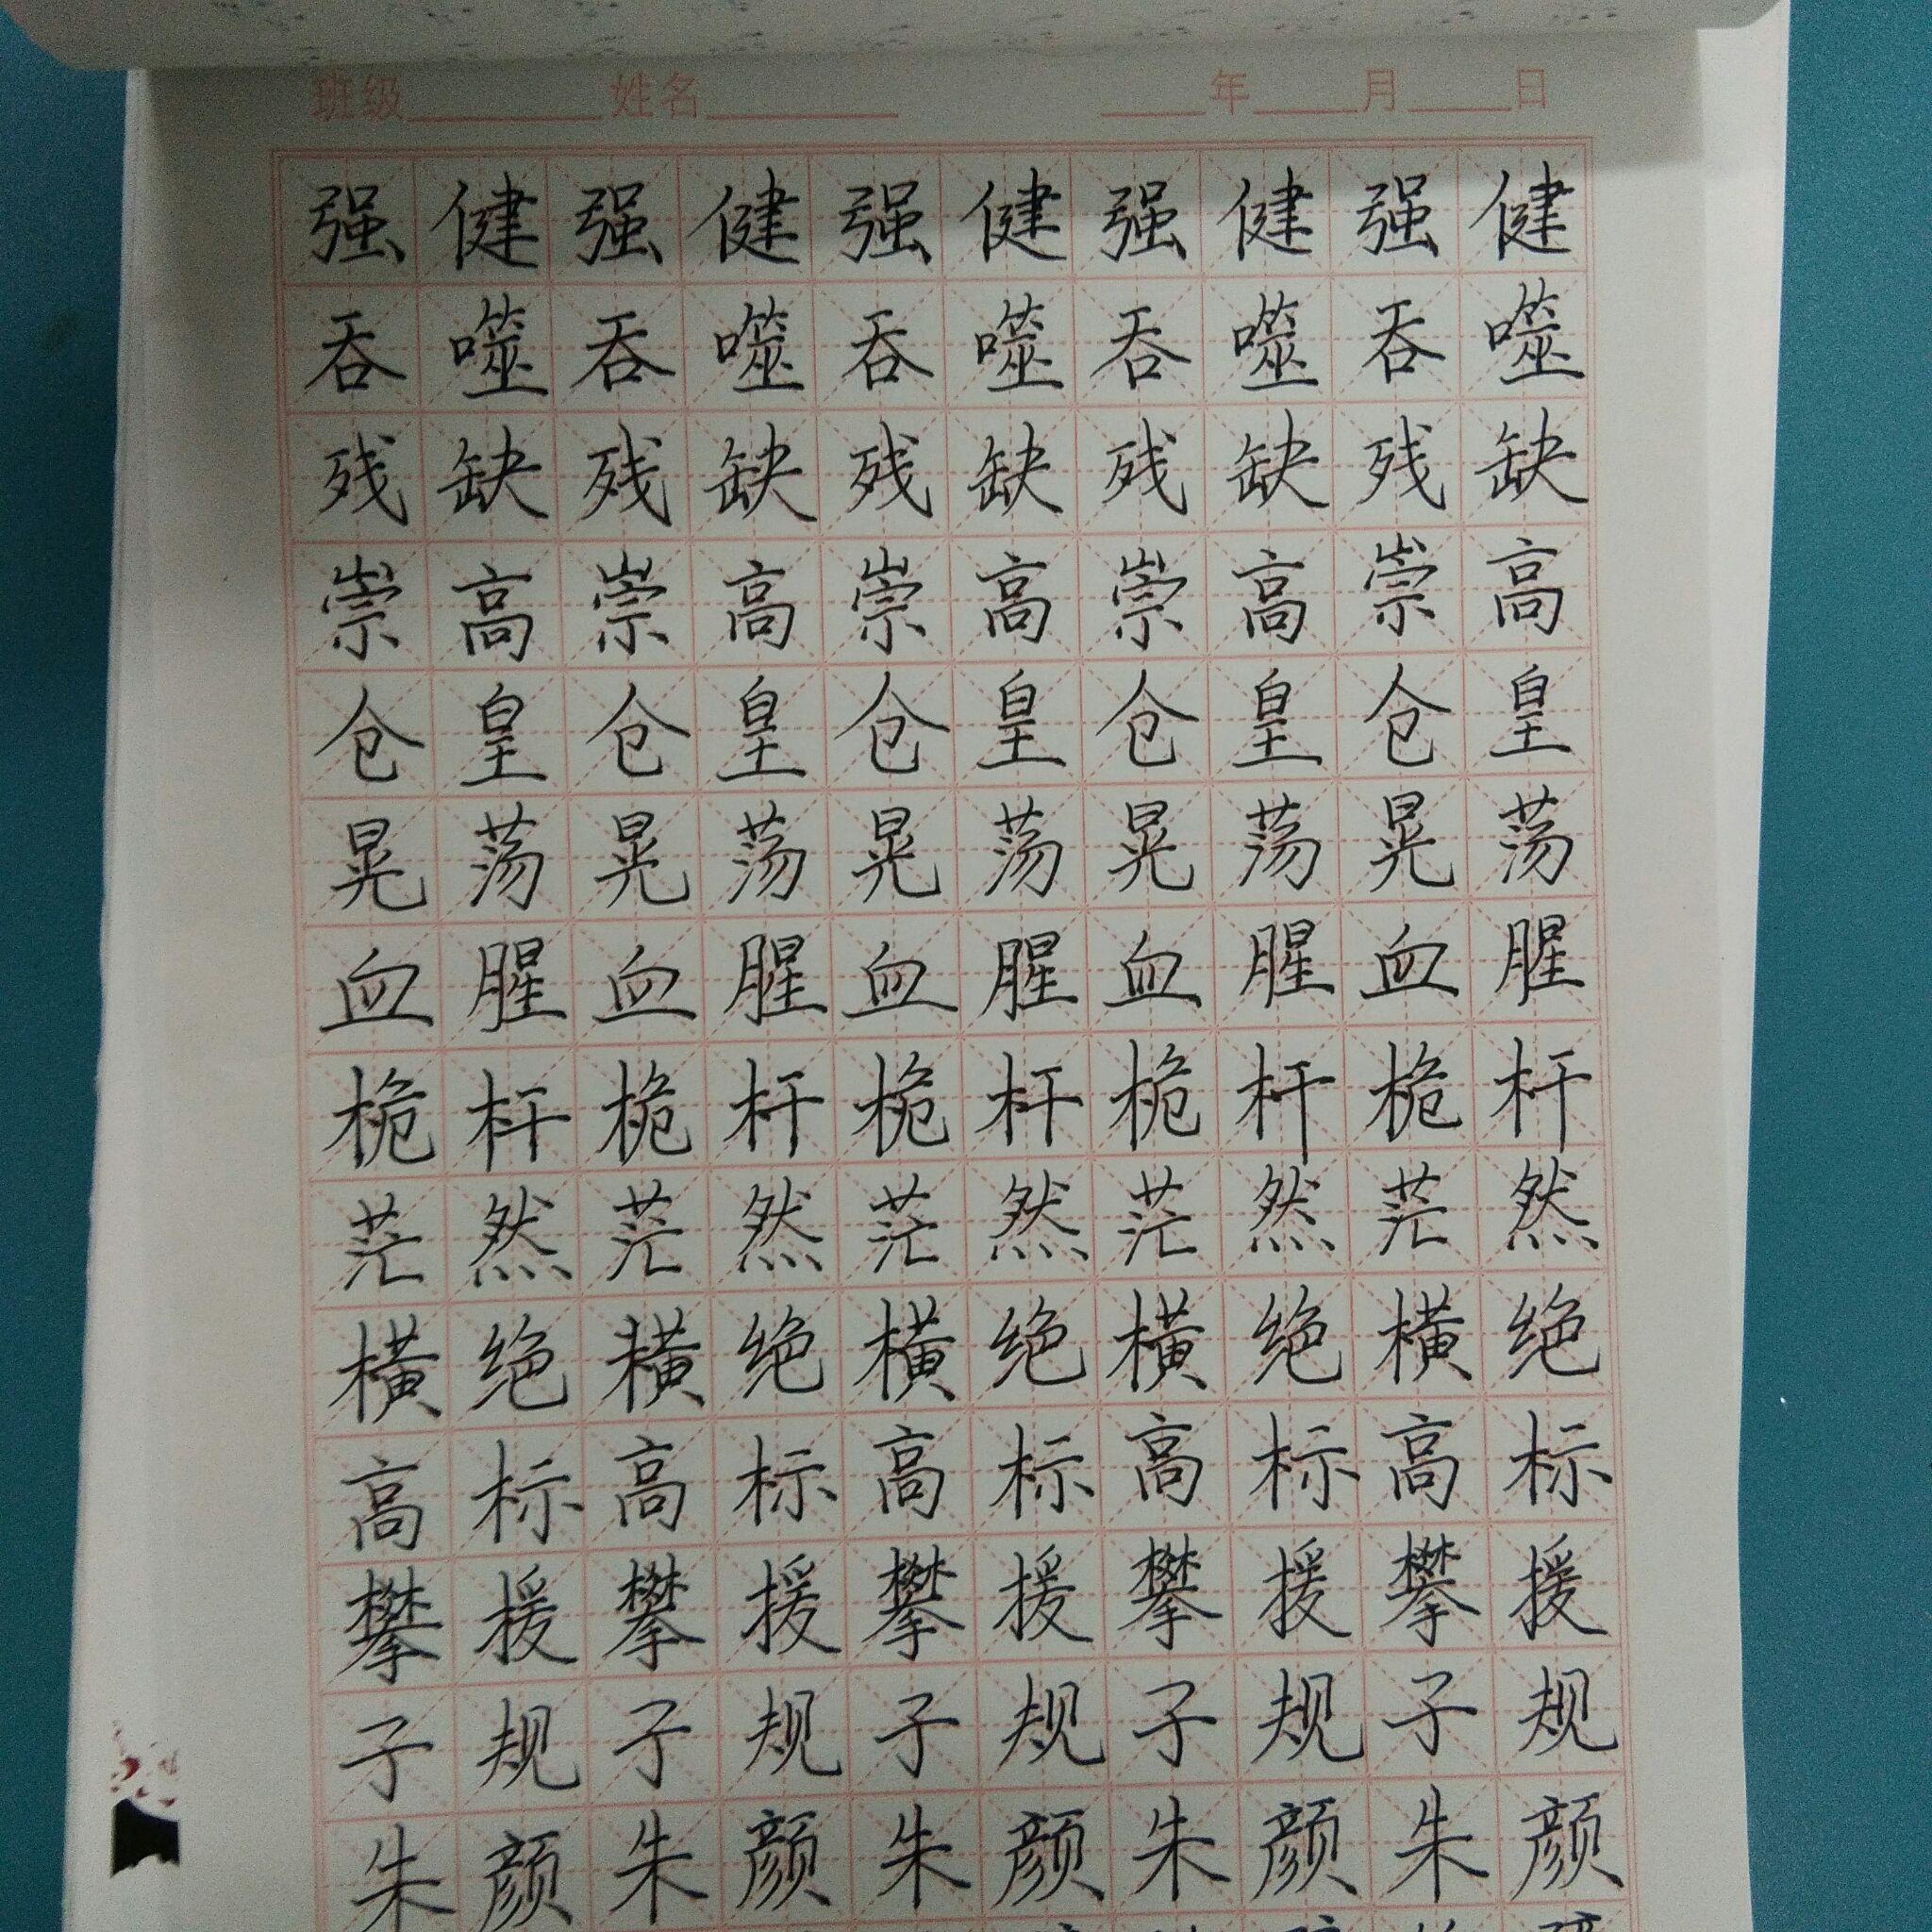 班级 姓名 年 月 日
强健强健强健强健强健
吞噬吞噬吞噬吞噬吞噬
残缺残缺残缺残缺残缺
崇高崇高崇高崇高崇高
仓皇仓皇仓皇仓皇仓皇
晃荡晃荡晃荡晃荡晃荡
血腥血腥血腥血腥血腥
桅杆桅杆桅杆桅杆桅杆
茫然茫然茫然茫然茫然
横绝横绝横绝横绝横绝
高标高标高标高标高标
攀援攀援攀援攀援攀援
子规子规子规子规子规
朱颜朱颜朱颜朱颜朱颜